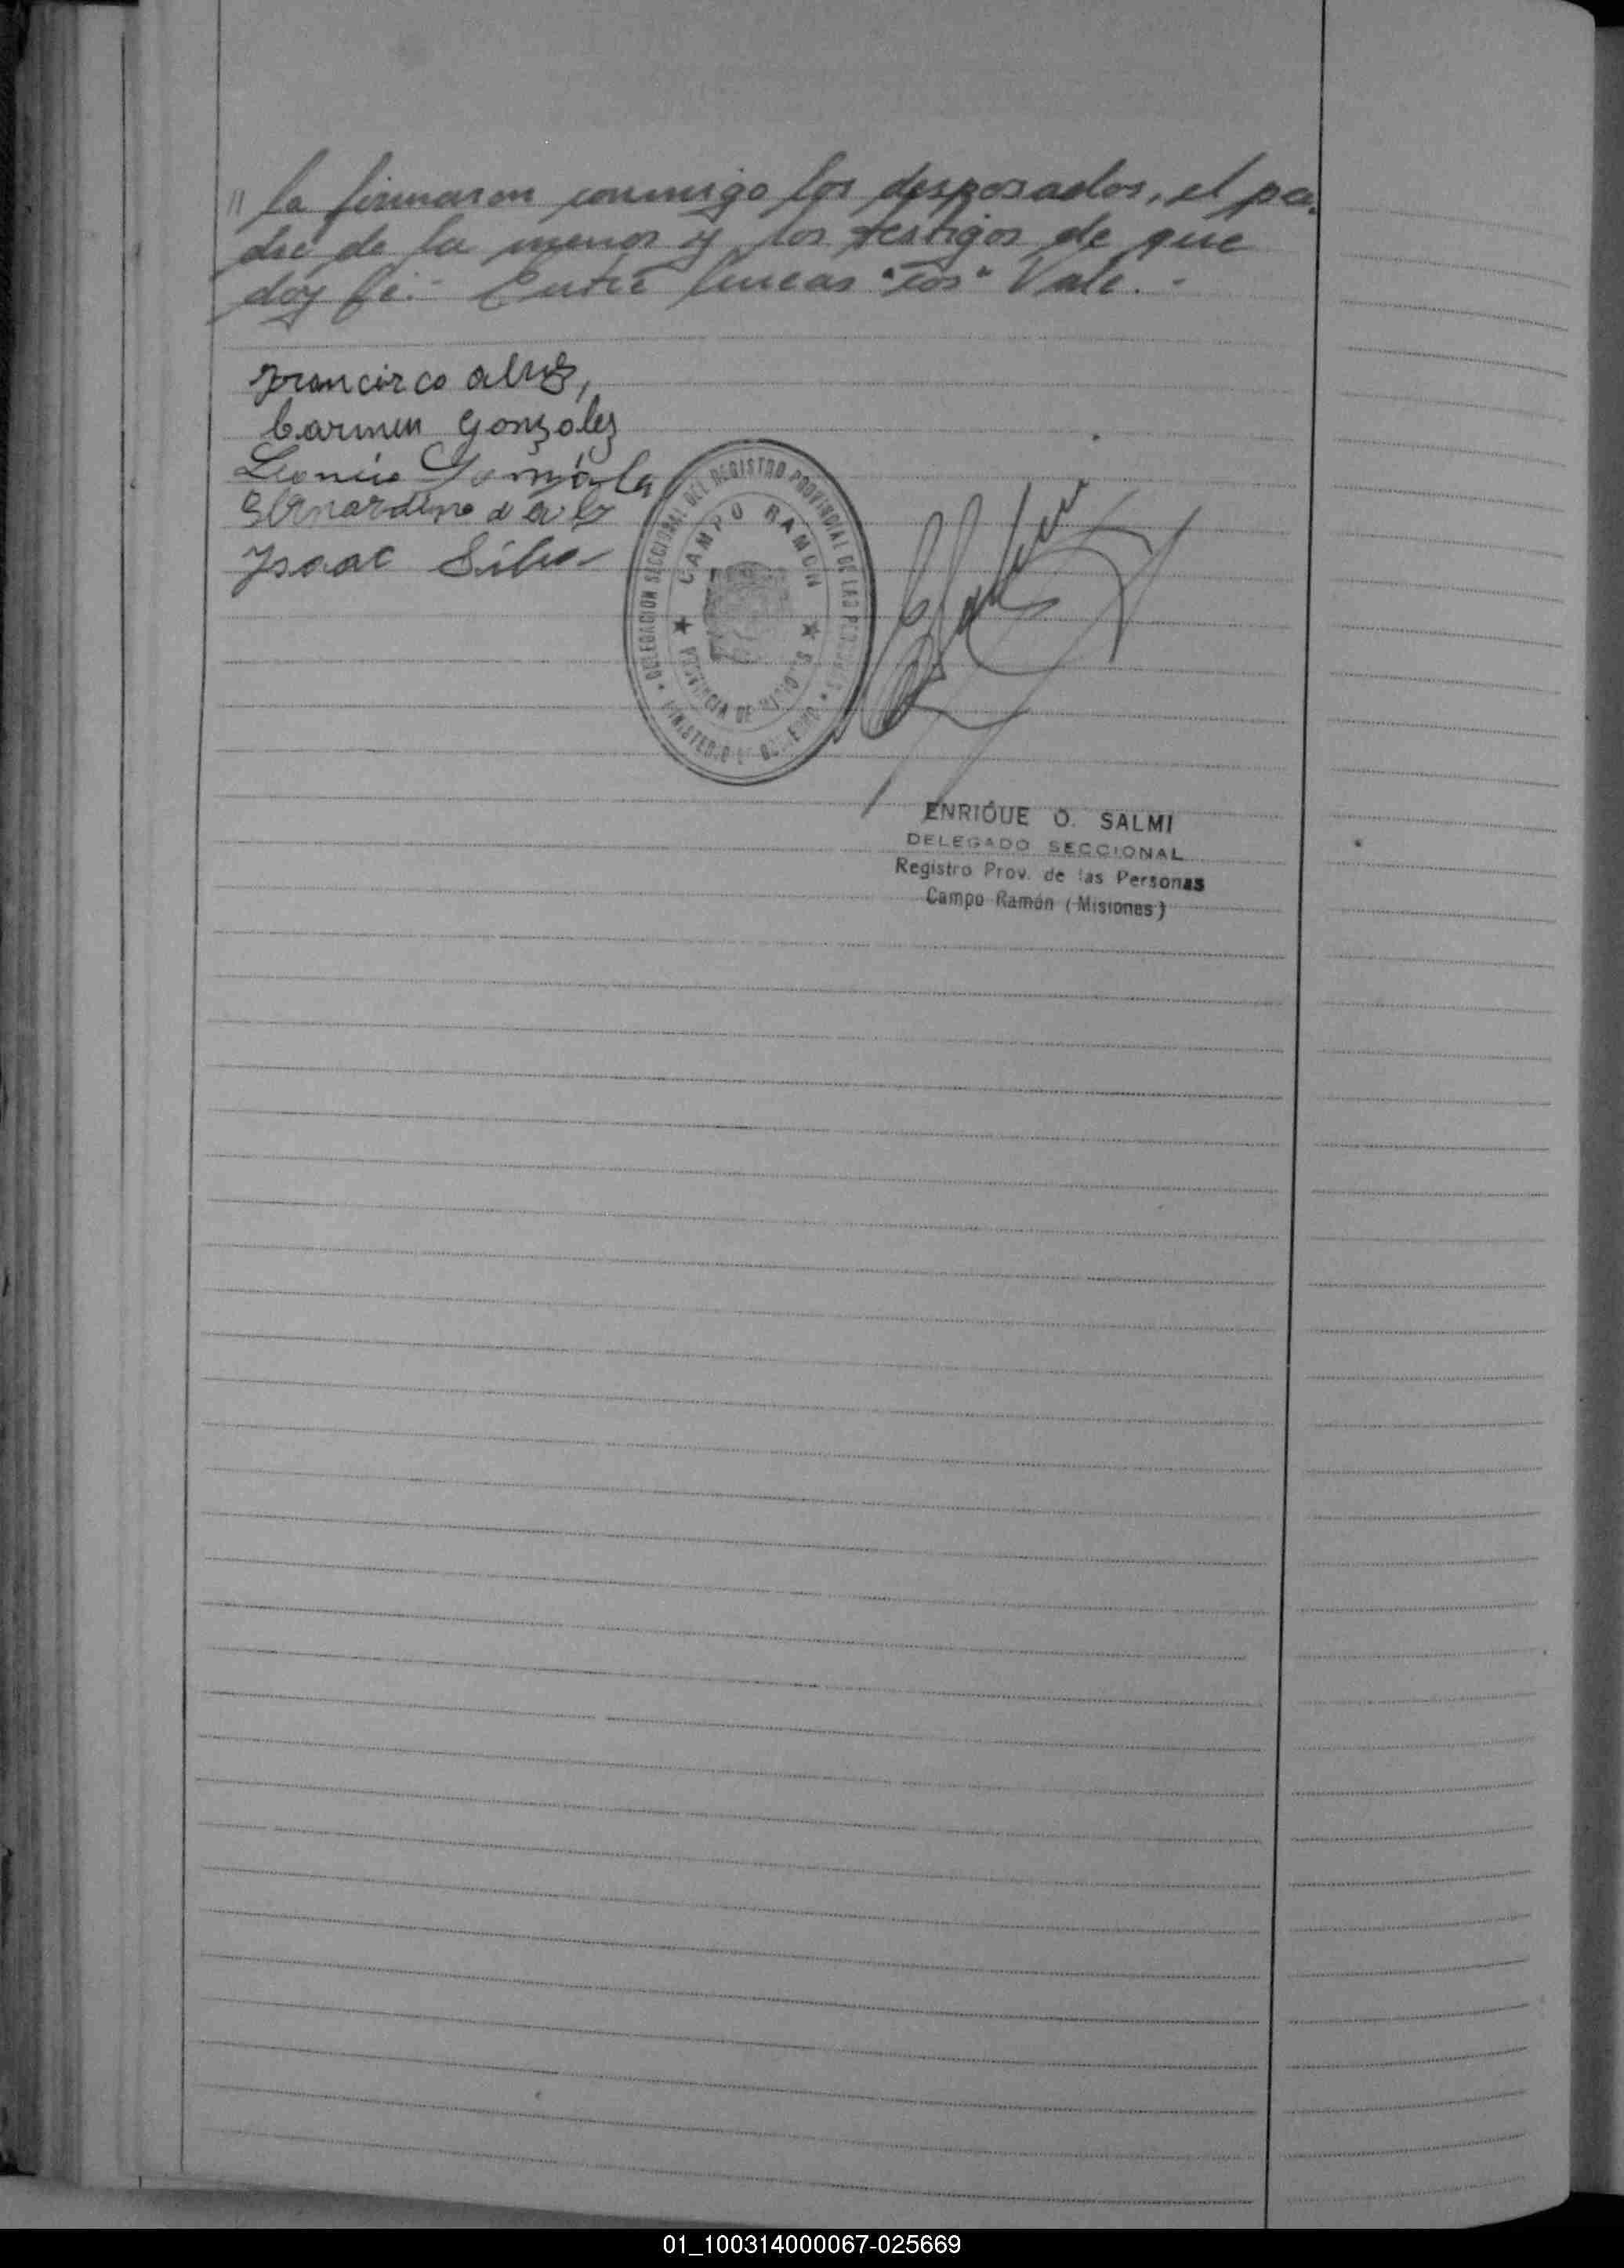 " la firmaron conmigo los desposados, el pa-
dre de la menor y los testigos de que
doy fé.- Entre lineas "los" Vale.-
Francisco alves,
Carmen Gonzalez
Leoncio
Bernardino
Isaac Silva
DELEGACION SECCIONAL DEL REGISTRO PROVINCIAL DE LAS PERSONAS
CAMPO RAMON
PROVINCIA DE MISIONES
MINISTERIO DE GOBIERNO
ENRIQUE O. SALMI
DELEGADO SECCIONAL
Registro Prov. de las Personas
Campo Ramón (Misiones)
01_100314000067-025669